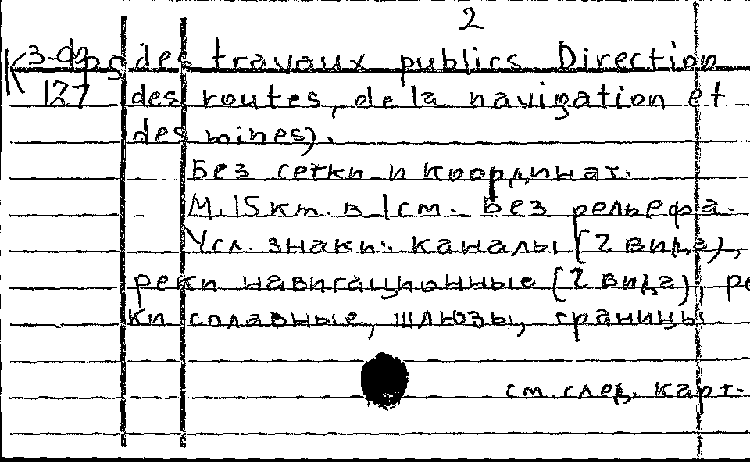 2
К 3-фр des travaux publics Direction
127 des routes, de la navigation et
des mines).
Без сетки и координат.
М. 15 км. в 1 см. Без рельефа.
Усл. знаки: каналы (2 вида),
реки навигационные (2 вида), ре
ки сплавные, шлюзы, границы
см. след. карт.